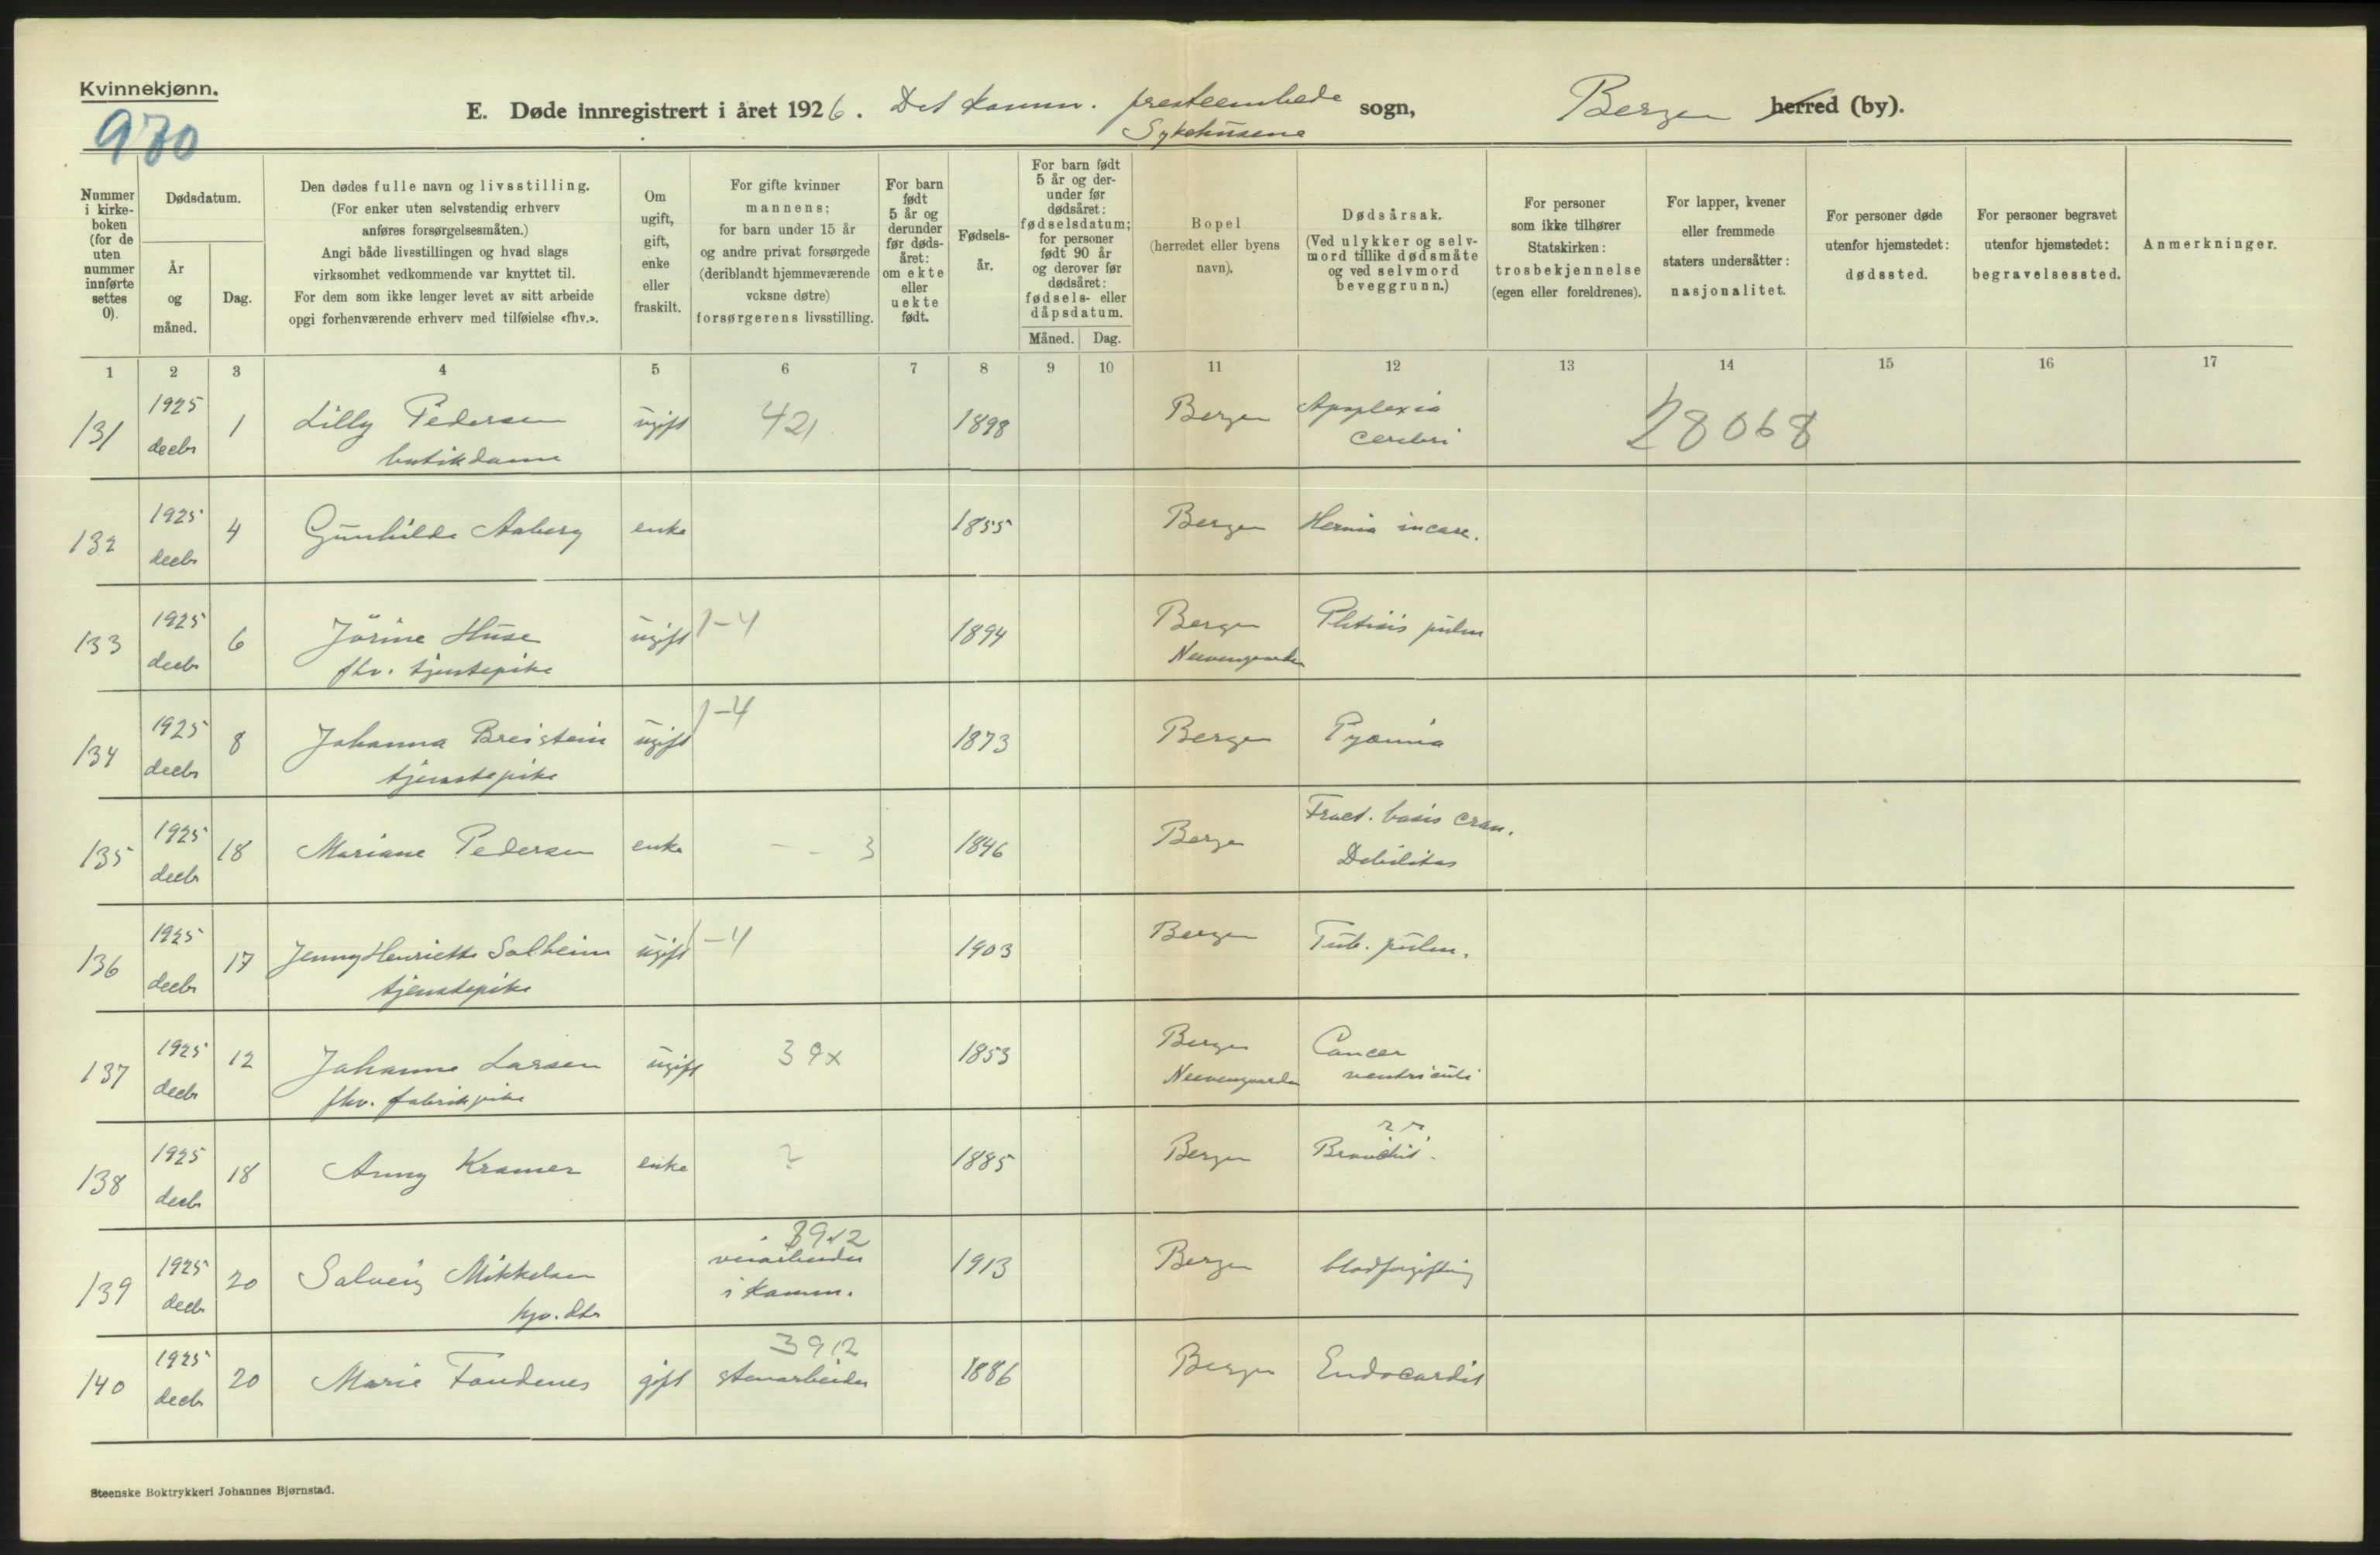 Kvinnekjønn.
970
E. Døde innregistrert i året 1926. Det komm. presteembede sogn, Bergen herred (by).
Sykehusene
Nummer i kirke-boken (for de uten nummer innførte settes 0).
Dødsdatum.
År og måned.
Dag.
Den dødes fulle navn og livsstilling.
(For enker uten selvstendig erhverv
anføres forsørgelsesmåten.)
Angi både livsstillingen og hvad slags
virksomhet vedkommende var knyttet til.
For dem som ikke lenger levet av sitt arbeide
opgi forhenværende erhverv med tilføielse «fhv.».
Om ugift, gift, enke eller fraskilt.
For gifte kvinner
mannens;
for barn under 15 år
og andre privat forsørgede
(deriblandt hjemmeværende
voksne døtre)
forsørgerens livsstilling.
For barn født 5 år og derunder før døds-året: om ekte eller uekte født.
Fødsels-år.
For barn født
5 år og der-
under før
dødsåret:
fødselsdatum;
for personer
født 90 år
og derover før
dødsåret:
fødsels- eller
dåpsdatum.
Måned. Dag.
Bopel
(herredet eller byens
navn).
Dødsårsak.
(Ved ulykker og selv-
mord tillike dødsmåte
og ved selvmord
beveggrunn.)
For personer
som ikke tilhører
Statskirken:
trosbekjennelse
(egen eller foreldrenes).
For lapper, kvener
eller fremmede
staters undersåtter:
nasjonalitet.
For personer døde
utenfor hjemstedet:
dødssted.
For personer begravet
utenfor hjemstedet:
begravelsessted.
Anmerkninger.
1 2 3 4 5 6 7 8 9 10 11 12 13 14 15 16 17
131 1925 decbr 1 Lilly Pedersen ugift 421 1898 Bergen Apoplexia 28068
butikdame cerebri
132 1925 decbr 4 Gunhilde Aaberg enke 1855 Bergen Hernia incarc.
133 1925 decbr 6 Jörine Huse ugift 1-4 1894 Bergen Phtisis pulm
fhv. tjenstepike Neevengaarden
134 1925 decbr 8 Johanna Breistein ugift 1-4 1873 Bergen Pyæmia
tjenstepike
135 1925 decbr 18 Mariane Pedersen enke - - 3 1846 Bergen Fract. basis cran.
Debilitas
136 1925 decbr 17 Jenny Henriette Solheim ugift 1-4 1903 Bergen Tub. pulm.
tjenstepike
137 1925 decbr 12 Johanne Larsen ugift 39x 1853 Bergen Cancer
fhv. fabrikpike Neevengaarden ventriculi
138 1925 decbr 18 Anny Kramer enke ? 1885 Bergen
139 1925 decbr 20 Solveig Mikkelsen 3912 veiarbeider 1913 Bergen blodforgiftning
i komm.
140 1925 decbr 20 Marie gift 3912 stenarbeider 1886 Bergen Endocardit
Steenske Boktrykkeri Johannes Bjørnstad.